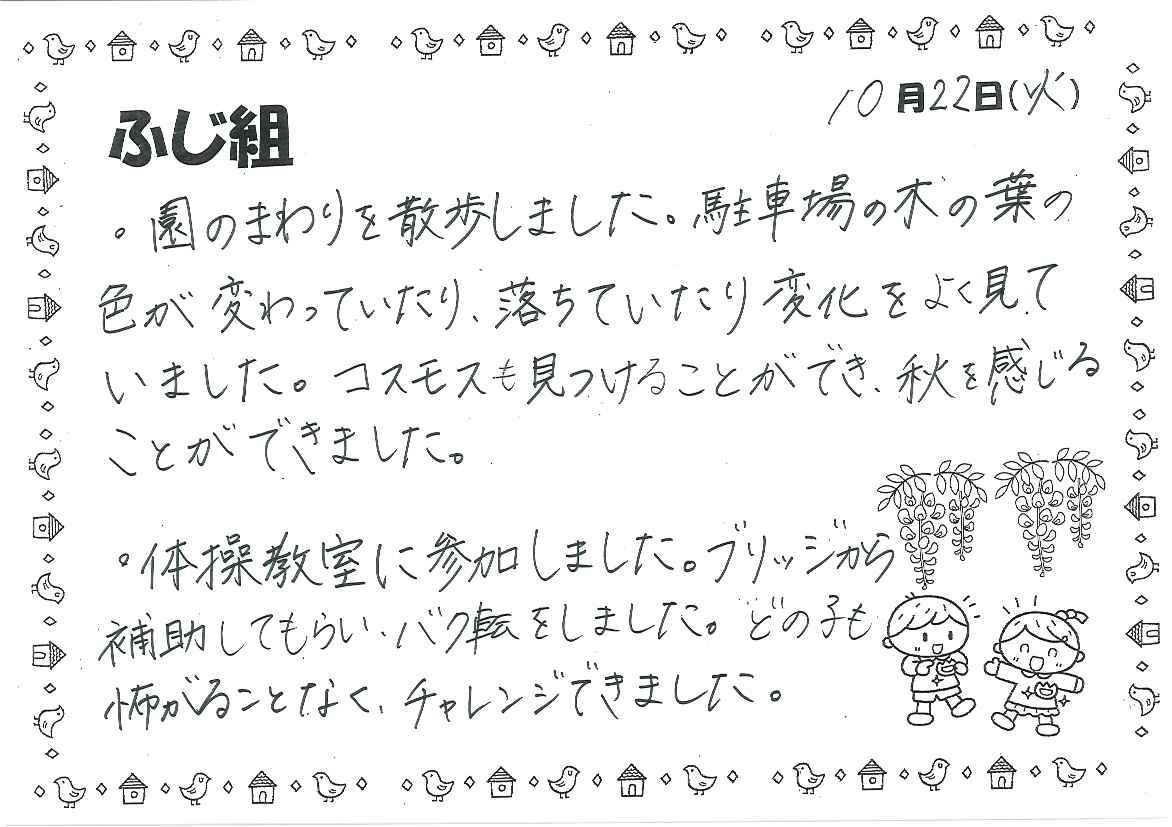 10月22日(火)
ふじ組
。園のまわりを散歩しました。駐車場の木の葉の
色が変わっていたり、落ちていたり変化をよく見て
いました。コスモスも見つけることができ、秋を感じる
ことができました。
。体操教室に参加しました。ブリッジから
補助してもらい、バク転をしました。どの子も
怖がることなく、チャレンジできました。